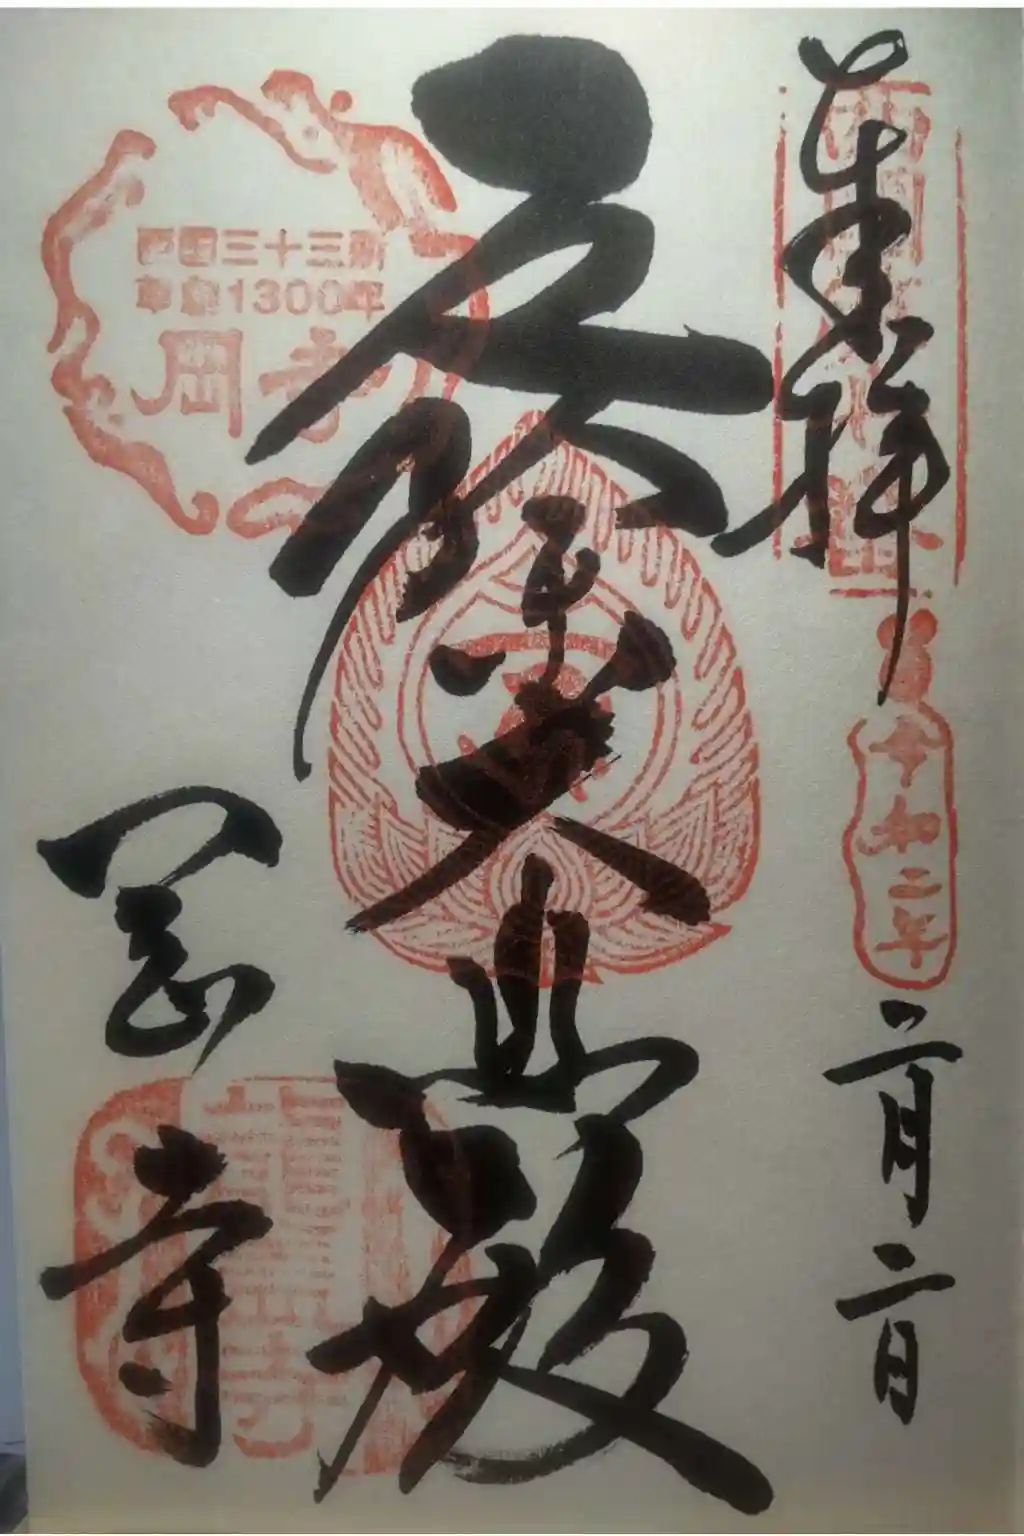 奉拝
令和二年
二月二日
厄除大悲殿
西国三十三所
草創1300年
岡寺
岡寺